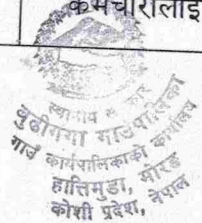 कर्मचारीलाई
स्थानीय सरकार
बुढीगंगा गाउँपालिका
गाउँ कार्यपालिकाको कार्यालय
हात्तिमुडा, मोरङ
कोशी प्रदेश, नेपाल